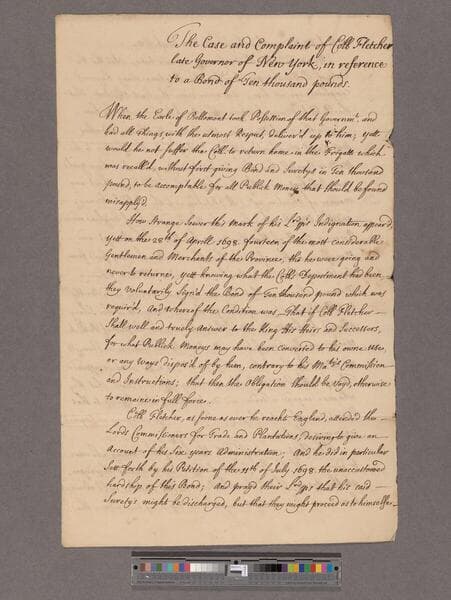 The Case and Complaint of Coll Fletcher
late Governor of New York, in reference
to a Bond of Ten thousand pounds.
When the Earle of Bellomont took Possession of that Governmt. and
had all things, with the utmost Respect, deliver'd up to him; yett
would he not suffer the Coll. to return home in the Frigatt which
was recall'd, without first giving Bond and Suretys in Ten thousand
pound, to be accomptable for all Publick Moneys that should be found
misapply'd.
How strange soever this mark of his Ldps Indignation appear'd,
yett on the 28th of Aprill 1698. fourteen of the most considerable
Gentlemen and Merchants of the Province, tho he were going and
never to returne, yett knowing what the Colls Deportment had been,
they Voluntarily Sign'd the Bond of Ten thousand pound which was
requir'd, And whereof the Condition was, That if Coll Fletcher
Shall well and truely Answer to the King His Heirs and Successors,
for what Publick Moneys may have been converted to his owne use,
or any ways dispos'd of by him, contrary to his Matys Commission
and Instructions; that then the Obligation should be Voyd, otherwise
to remaine in full force.
Coll Fletcher, as soone as ever he reacht England, attended the
Lords Commissioners for Trade and Plantations, desiring to give an
Account of his Six years Administration; And he did in particular
Sett forth by his Petition of the 11th of July 1698. the unaccustomed
hardship of this Bond; And pray'd their Ldps that his said
Suretys might be discharged, but that they might proceed as to himselfe